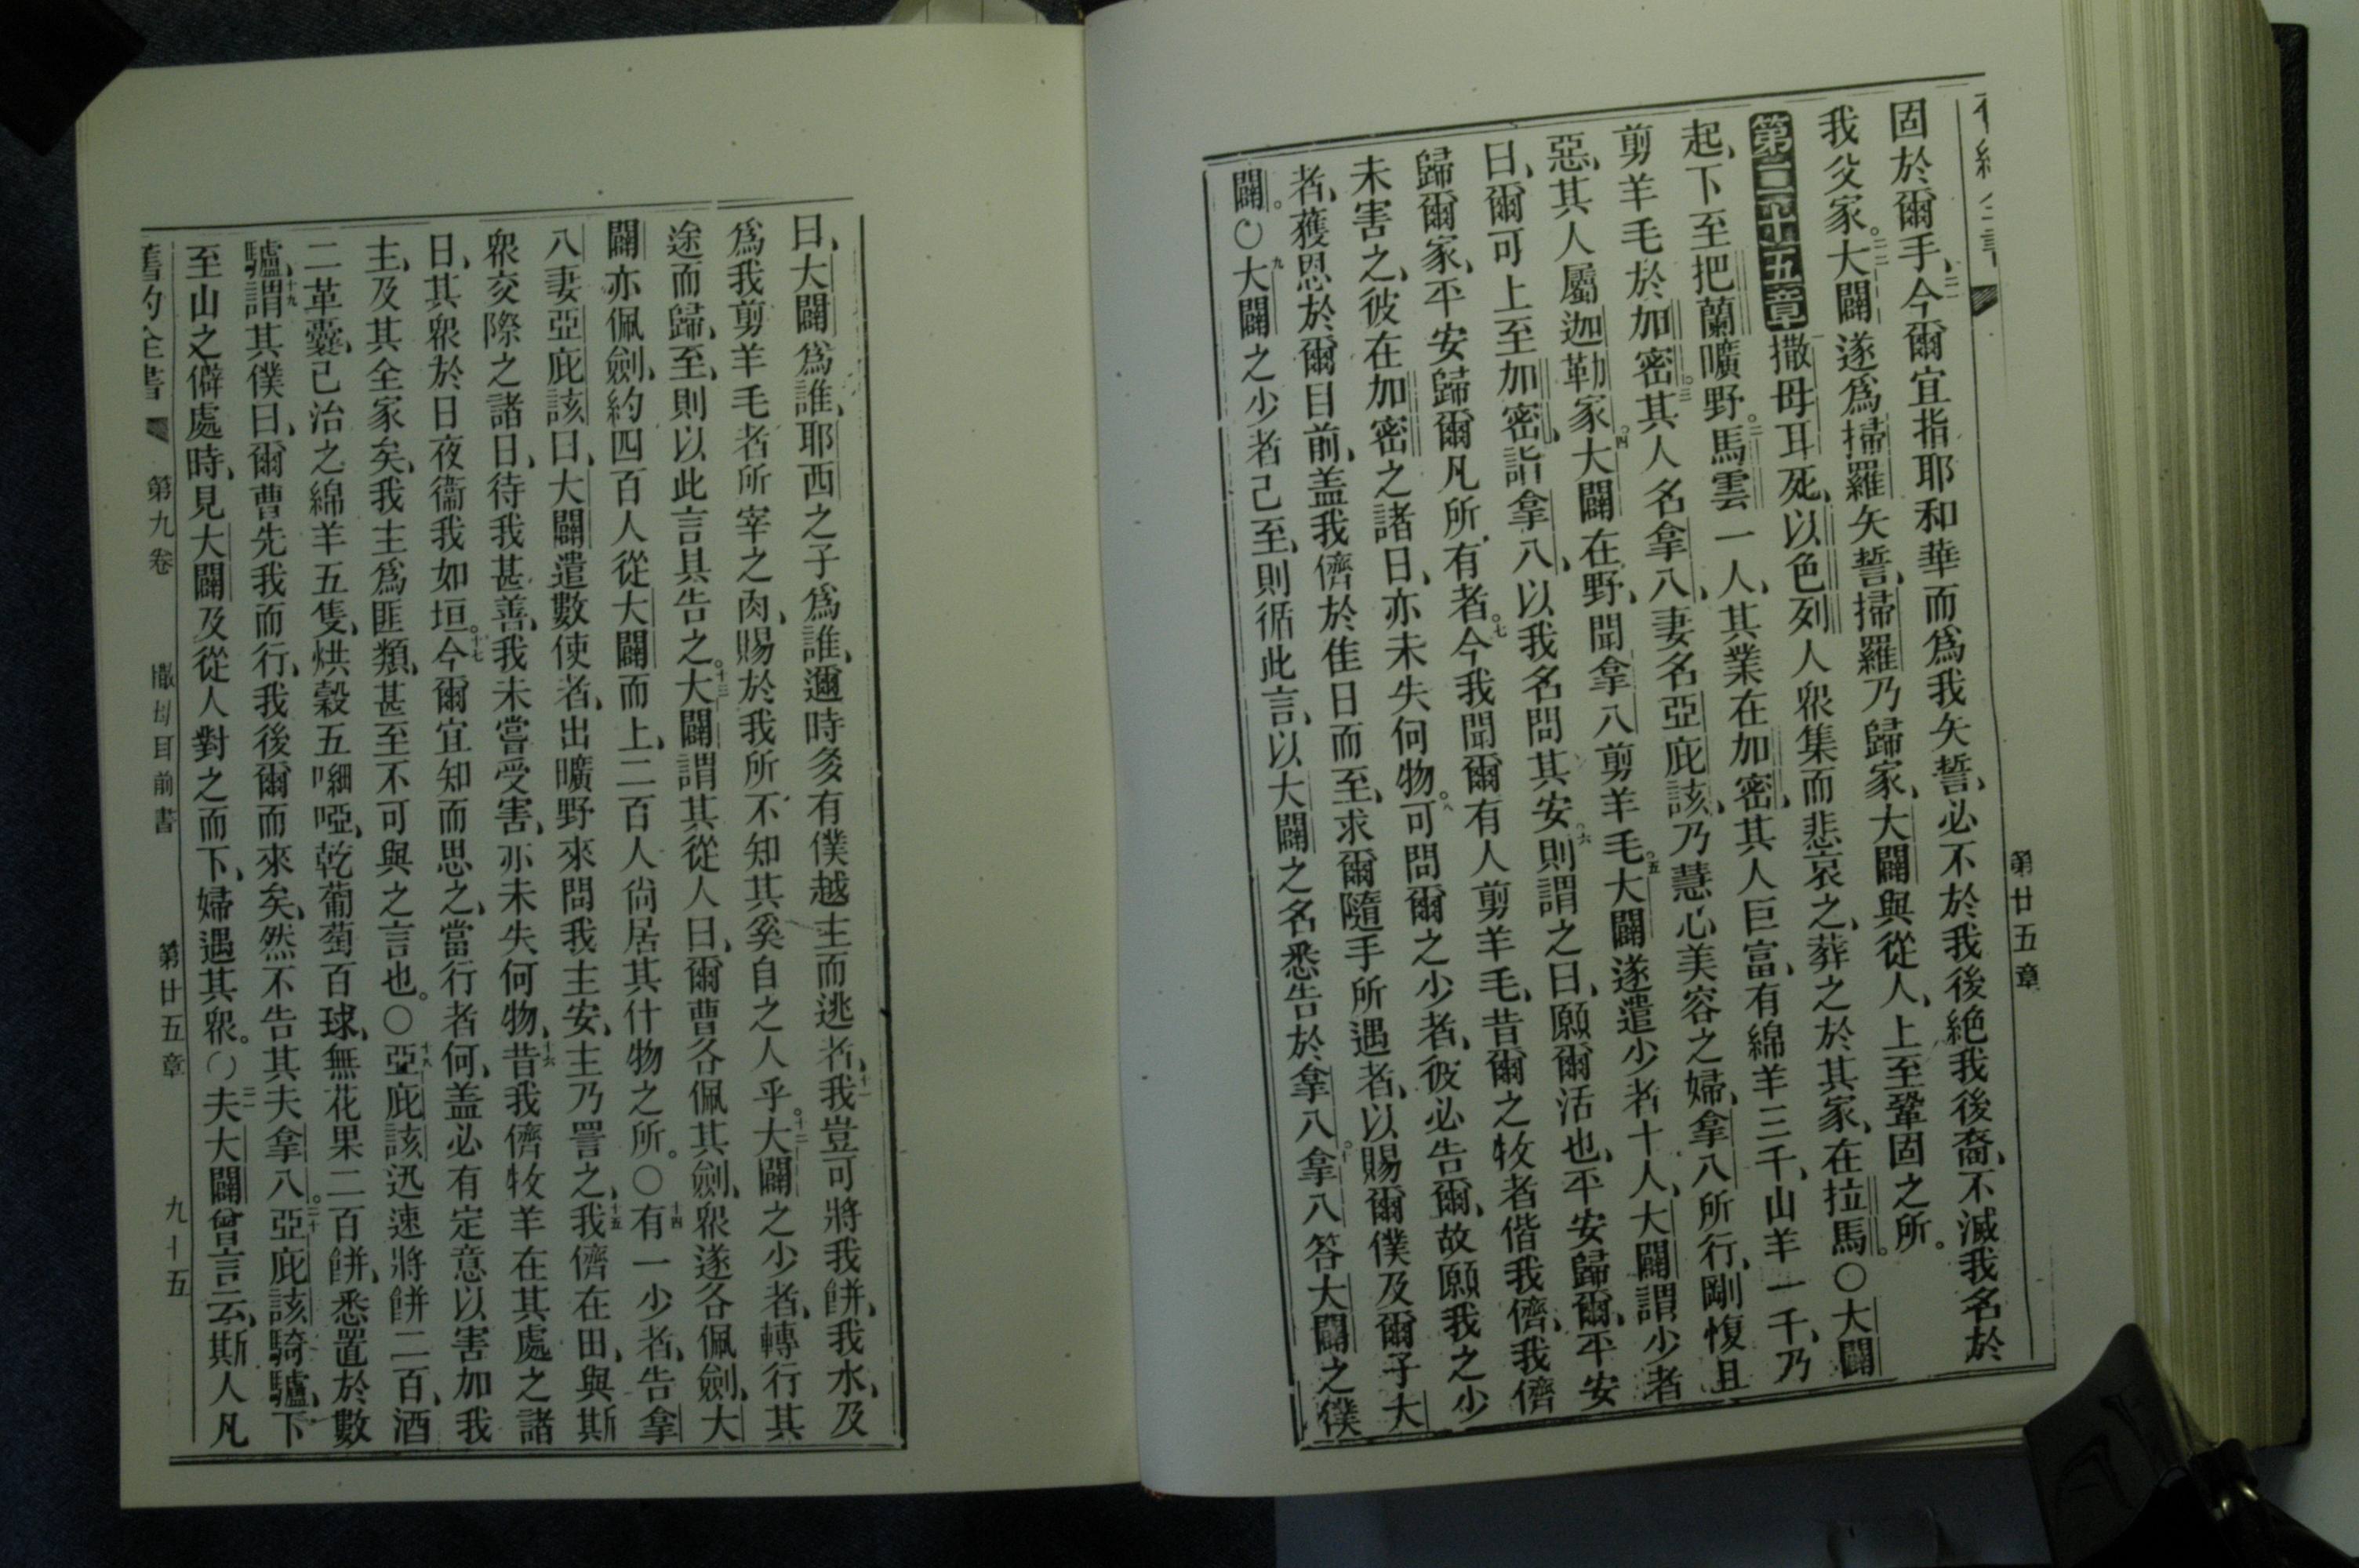 第廿五章
固於爾手、今爾宜指耶和華而爲我矢誓、必不於我後絕我後裔、不滅我名於
我父家。大闢遂爲掃羅矢誓、掃羅乃歸家、大闢與從人、上至鞏固之所。
第二十五章 撒母耳死、以色列人衆集而悲哀之、葬之於其家、在拉馬。○大闢
起、下至把蘭曠野。二馬雲一人、其業在加密、其人巨富、有綿羊三千、山羊一千、乃
剪羊毛於加密。三其人名拿八、妻名亞庇該、乃慧心美容之婦、拿八所行、剛愎且
惡、其人屬迦勒家。四大闢在野、聞拿八剪羊毛。五大闢遂遣少者十人、大闢謂少者
曰、爾可上至加密、詣拿八、以我名問其安。六則謂之曰、願爾活也、平安歸爾、平安
歸爾家、平安歸爾凡所有者。七今我聞爾有人剪羊毛、昔爾之牧者偕我儕、我儕
未害之、彼在加密之諸日、亦未失何物。八可問爾之少者、彼必告爾、故願我之少
者、獲恩於爾目前、盖我儕於佳日而至、求爾隨手所遇者、以賜爾僕及爾子大
闢。○九大闢之少者已至、則循此言、以大闢之名悉告於拿八。十拿八答大闢之僕
曰、大闢爲誰、耶西之子爲誰、邇時多有僕越主而逃者、十一我豈可將我餅、我水、及
爲我剪羊毛者所宰之肉、賜於我所不知其奚自之人乎。十二大闢之少者、轉行其
途而歸、至、則以此言具告之。十三大闢謂其從人曰、爾曹各佩其劍、衆遂各佩劍、大
闢亦佩劍、約四百人從大闢而上、二百人尙居其什物之所。○十四有一少者、告拿
八妻亞庇該曰、大闢遣數使者、出曠野來問我主安、主乃詈之、十五我儕在田、與斯
衆交際之諸日、待我甚善、我未嘗受害、亦未失何物、十六昔我儕牧羊在其處之諸
日、其衆於日夜衞我如垣。十七今爾宜知而思之、當行者何、盖必有定意以害加我
主、及其全家矣、我主爲匪類、甚至不可與之言也。○十八亞庇該迅速將餅二百、酒
二革囊、已治之綿羊五隻、烘穀五嗍啞、乾葡萄百球、無花果二百餅、悉置於數
驢、十九謂其僕曰、爾曹先我而行、我後爾而來矣、然不告其夫拿八。二十亞庇該騎驢、下
至山之僻處時、見大闢及從人對之而下、婦遇其衆。○二一夫大闢曾言云、斯人凡
舊約全書 第九卷 撒母耳前書 第廿五章 九十五